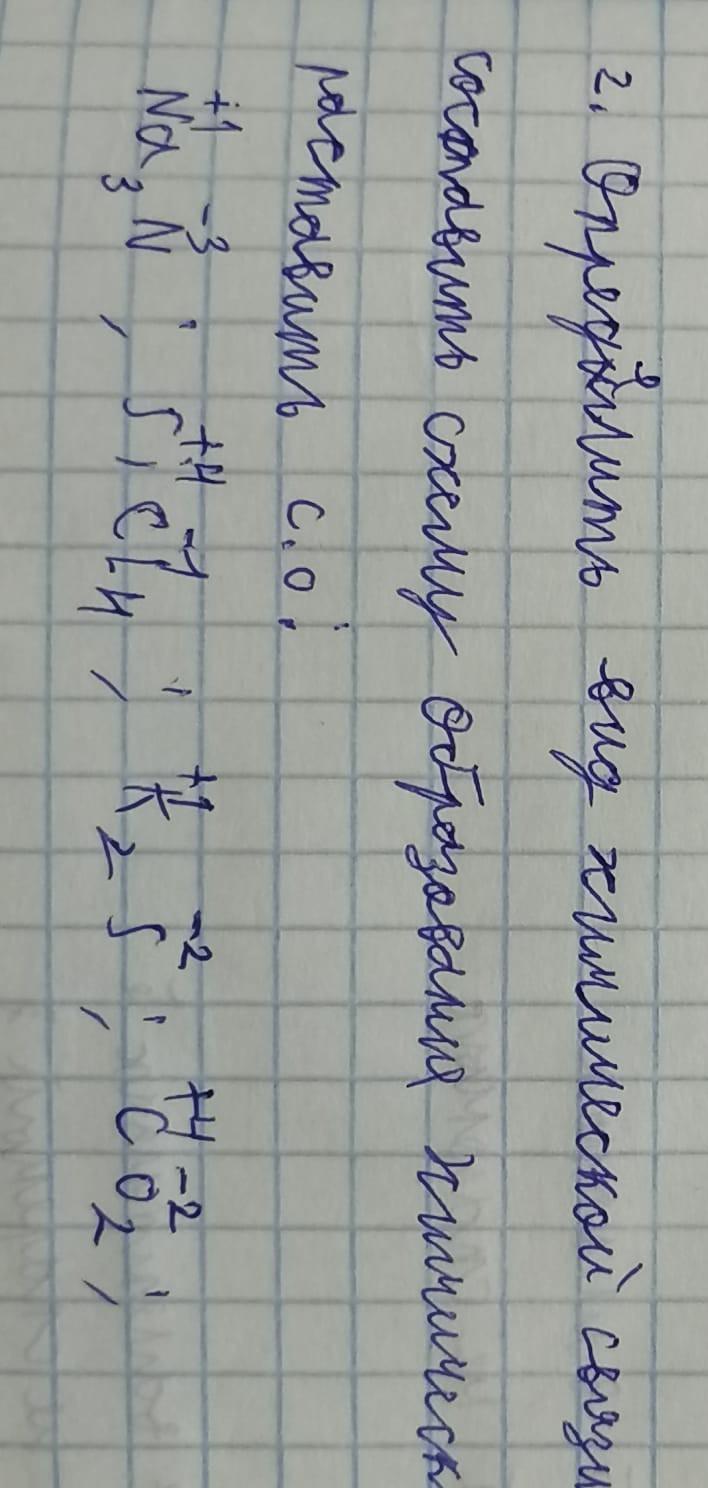 2. Определить вид химической связи
составить схему образования химическ
раставить с.о:
Na₃⁺¹N⁻³; Si⁺⁴Cl₄⁻¹; K₂⁺¹S⁻²; C⁺⁴O₂⁻²;